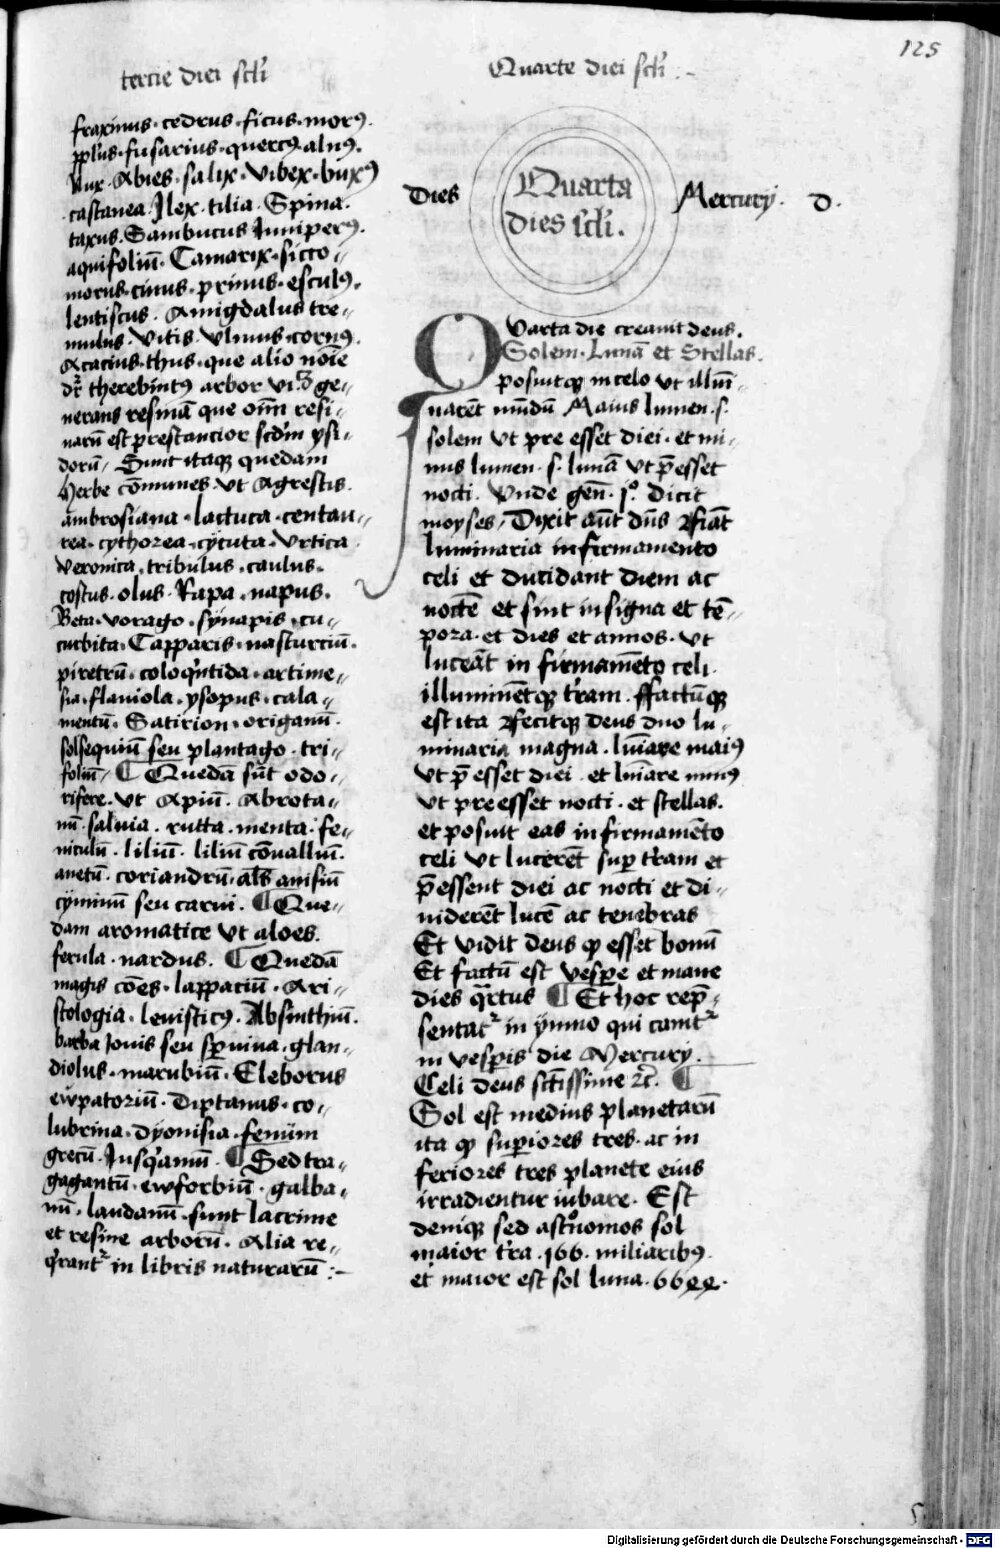 125
tercie diei scłi
fraximus · cedrus · ficus · morꝰ
ppl'us · fusarius · quercꝰ alnꝰ
Nux · Abies · salix · vibex · buxꝰ
castanea · Ilex · tilia · Spina ·
taxus · Sambucus Iuniperꝰ ·
aquifoliū · Tamarix · sicco
morus · cinus · prinus · esculꝰ ·
lentiscus · Amigdalus tre
mulus · vitis · vlmus · cornꝰ
Acacius · thus · que alio noīe
dr̄ therebintꝰ arbor
ge
nerans resinā que oīm resi
narū est prestancior scd'm ysi
dorū · Sunt itaqꝫ quedam
herbe cōmunes · vt Agrestis
ambrosiana · lactuca · centau
rea · cythorea · cycuta · vrtica
veronica · tribulus · caulus ·
costus · olus · Rapa · napus ·
Beta · vorago · synapis · cu
curbita · Capparis · nasturciū ·
piretrū · coloqn'tida · artime
sia · flauiola · ysopus · cala
mentū · Satirion · origanū ·
solsequiū seu plantago · tri
foliū · ¶ Quedā sūt odo
rifere · vt Apiū · Abrota
nū · saluia · rutta · menta · fe
niculū · liliū · liliū cōualliū ·
anetū · coriandrū · al's anisiū
cyminū seu carui · ¶ Que
dam aromatice vt aloes
ferula · nardus · ¶ Quedā
magis cōes · lappaciū · Ari
stologia · leuisticꝰ · Absinthiū ·
barba Iouis seu sp̄uiua · glan
diolus · marubiū · Eleborus
ewpatoriū · diptanus · co
lubrina · dyonisia · fenum
grecū · Iusq'amū · ¶ Sed tra
gagantū · ewforbiū · galba
nū · laudanū · sunt lacrime
et resine arborū · Alia re
q'rantᷣ in libris naturarū :~
Quarte diei scłi :~
Dies
Quarta
dies scłi ·
Mercury · d ·
QVarta die creauit deus ·
Solem · Lunā et Stellas ·
posuitqꝫ in celo vt illuī
narēt mūdū Maius lumen · s ·
solem vt pre esset diei · et mi
nus lumen · s · lunā vt p̄esset
nocti · Vnde gen̄ · i° · dicit
moyses / Dixit aūt dn̄s fiāt
luminaria in firmamento
celi et diuidāt diem ac
noctē et sint in signa et tē
pora · et dies et annos · vt
luceāt in firmamēto celi
illuminētqꝫ t'ram · ffactūqꝫ
est ita fecitqꝫ deus duo lu
minaria magna · lūiare maiꝰ
vt p̄esset diei · et lūiare minꝰ
vt pre esset nocti · et stellas ·
et posuit eas in firmamēto
celi vt lucerēt sup t'ram et
p̄essent diei ac nocti et di
uiderēt lucē ac tenebras
Et vidit deus qꝫ esset bonū
Et factū est vespe et mane
dies qrtus ¶ Et hoc rep̄
sentatᷣ in ymno qui canitᷣ
in vesp̄is die Mercury ·
Celi deus sctissime ⁊c̄ · ¶
Sol est medius planetarū
ita qꝫ supiores tres · ac in
feriores tres planete eius
irradientur iubare · Est
deniqꝫ sed astronomos sol
maior t'ra · 166 · miliaribꝰ
et maior est sol luna ·